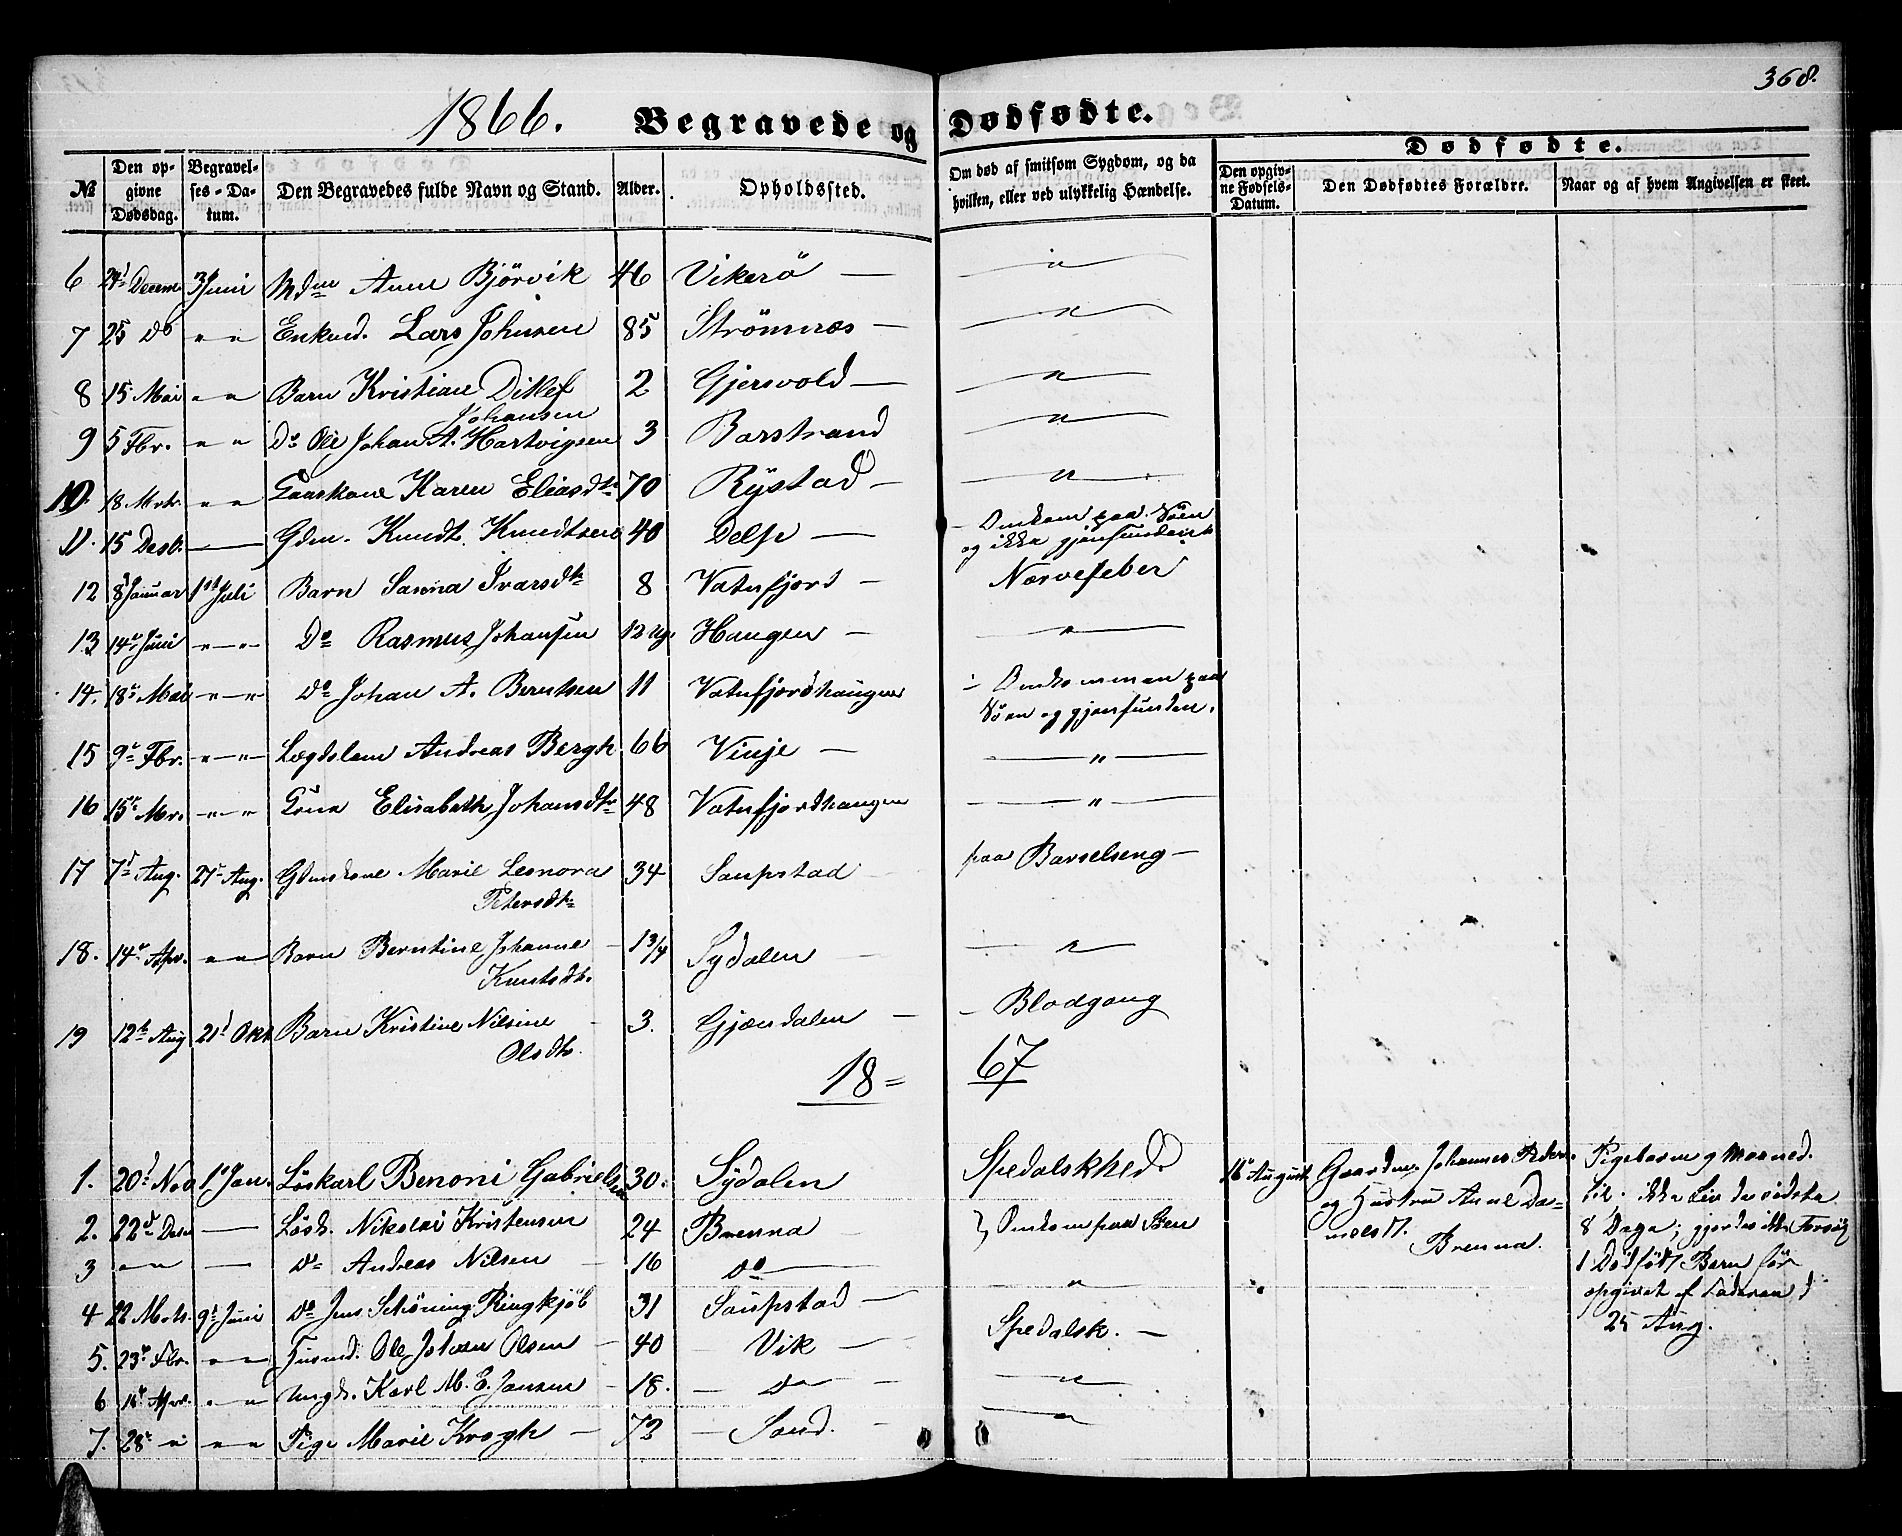 368.
1866. Begravede og Dødfødte.
Dødfødte.
№ Den opgivne Dødsdag. Begravelses-Datum. Den Begravedes fulde Navn og Stand. Alder. Opholdssted. Om død af smitsom Sygdom, og da hvilken, eller ved ulykkelig Hændelse. Den opgivne Fødsels-Datum. Den Dødfødtes Forældre. Naar og af hvem Angivelsen er skeet.
6 24d Decem 3 Juni Mdm Anne Bjørvik 46 Vikerö — "
7 25 Do " " Enkmd. Lars Johnsen 85 Strömnæs — "
8 15 Mai " " Barn Kristian Ditlef Johansen 2 Gjersvold — "
9 5 Fbr. " " Do Ole Johan A. Hartvigsen 3 Barstrand "
10. 18 Mrts. " " Kaarkone Karen Eliasdtr 70 Rystad — "
11. 15 Desb. — Gdm. Knudt Knudtsen 40 Delp — Omkom paa Söen
og ikke gjenfunden
12 8d Januar 1st Juli Barn Sanna Ivarsdtr 8 Vatnfjord — Nervefeber
13 14de Juni " — " Do Rasmus Johansen 12 Ug. Haugen — "
14. 18de Mai " — " Do Johan A. Berntsen 11 Vatnfjordhaugen — Omkommen paa
Söen og gjenfunden.
15 9de Fbr. " — " Lægdslem Andreas Bergh 66 Vinje — "
16 15de Mrs " — " Elisabeth Johansdtr 48 Vatnfjordhaugen — " —
17 7d Aug. 27d Aug. Gdmskone Marie Leonora Petersdtr 34 Saupstad paa Barselseng —
18. 14de Apr. " — " Barn Berntine Johanne Knutsdtr. 1 3/4 Sydalen — "
19 12te Aug 21d Okt Barn Kristine Nilsine Olsdtr. 3. Gjændalen — Blodgang
18 = 67
1. 20d Nov 1d Jan. Löskarl Benoni Gabrielsen 30. Sydalen Spedalskhed 16de August Gaardm. Johannes Peder-
og Hustru Anne Da-
Brenna.
Pigebarn 9 Maaned.
til. ikke Liv de sidste
8 Dage; gjordes ikke Forsög
1 Dödfödt Barn för
opgivet af Faderen d
25 Aug.
2. 22d Desb — Lösk. Nikolai Kristensen 24 Brenna } Omkom paa Söen
3 " " — Do Andreas Nilsen 16 Do — "
4 22 Mrts. 9d Juni Do Jens Schöning Ringkjöb 31 Saupstad —
5. 23de Fbr. " — " Husmd. Ole Johan Olsen 40 Vik — Spedalsk. —
6 16de Apr. " — " Ungk. Karl M. E. Jansen 18. — Do — "
7. 28de " " — " Pige Marie Krogh — 72 — Sand. — "